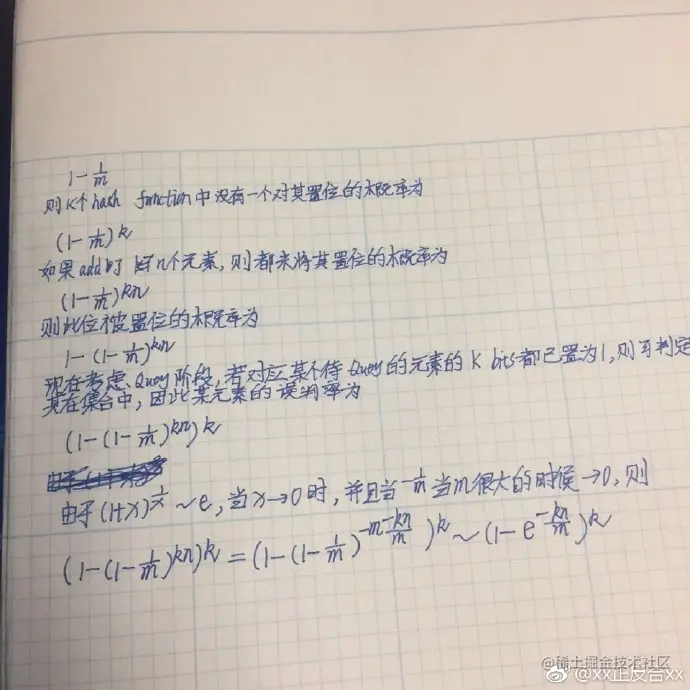 1-1/m
则K个hash function中没有一个对其置位的概率为
(1-1/m)^k
如果add了n个元素,则都未将其置位的概率为
(1-1/m)^{kn}
则此位被置位的概率为
1-(1-1/m)^{kn}
现在考虑Query阶段,若对应某个待Query的元素的K bits都已置为1,则可判定
其在集合中,因此某元素的误判率为
(1-(1-1/m)^{kn})^k
由于(1+x)^{1/x}~e,当x→0时,并且当-1/m当m很大的时候→0,则
(1-(1-1/m)^{kn})^k=(1-(1-1/m)^{-m·-kn/m})^k~(1-e^{-kn/m})^k
@稀土掘金技术社区
@xx正反合xx